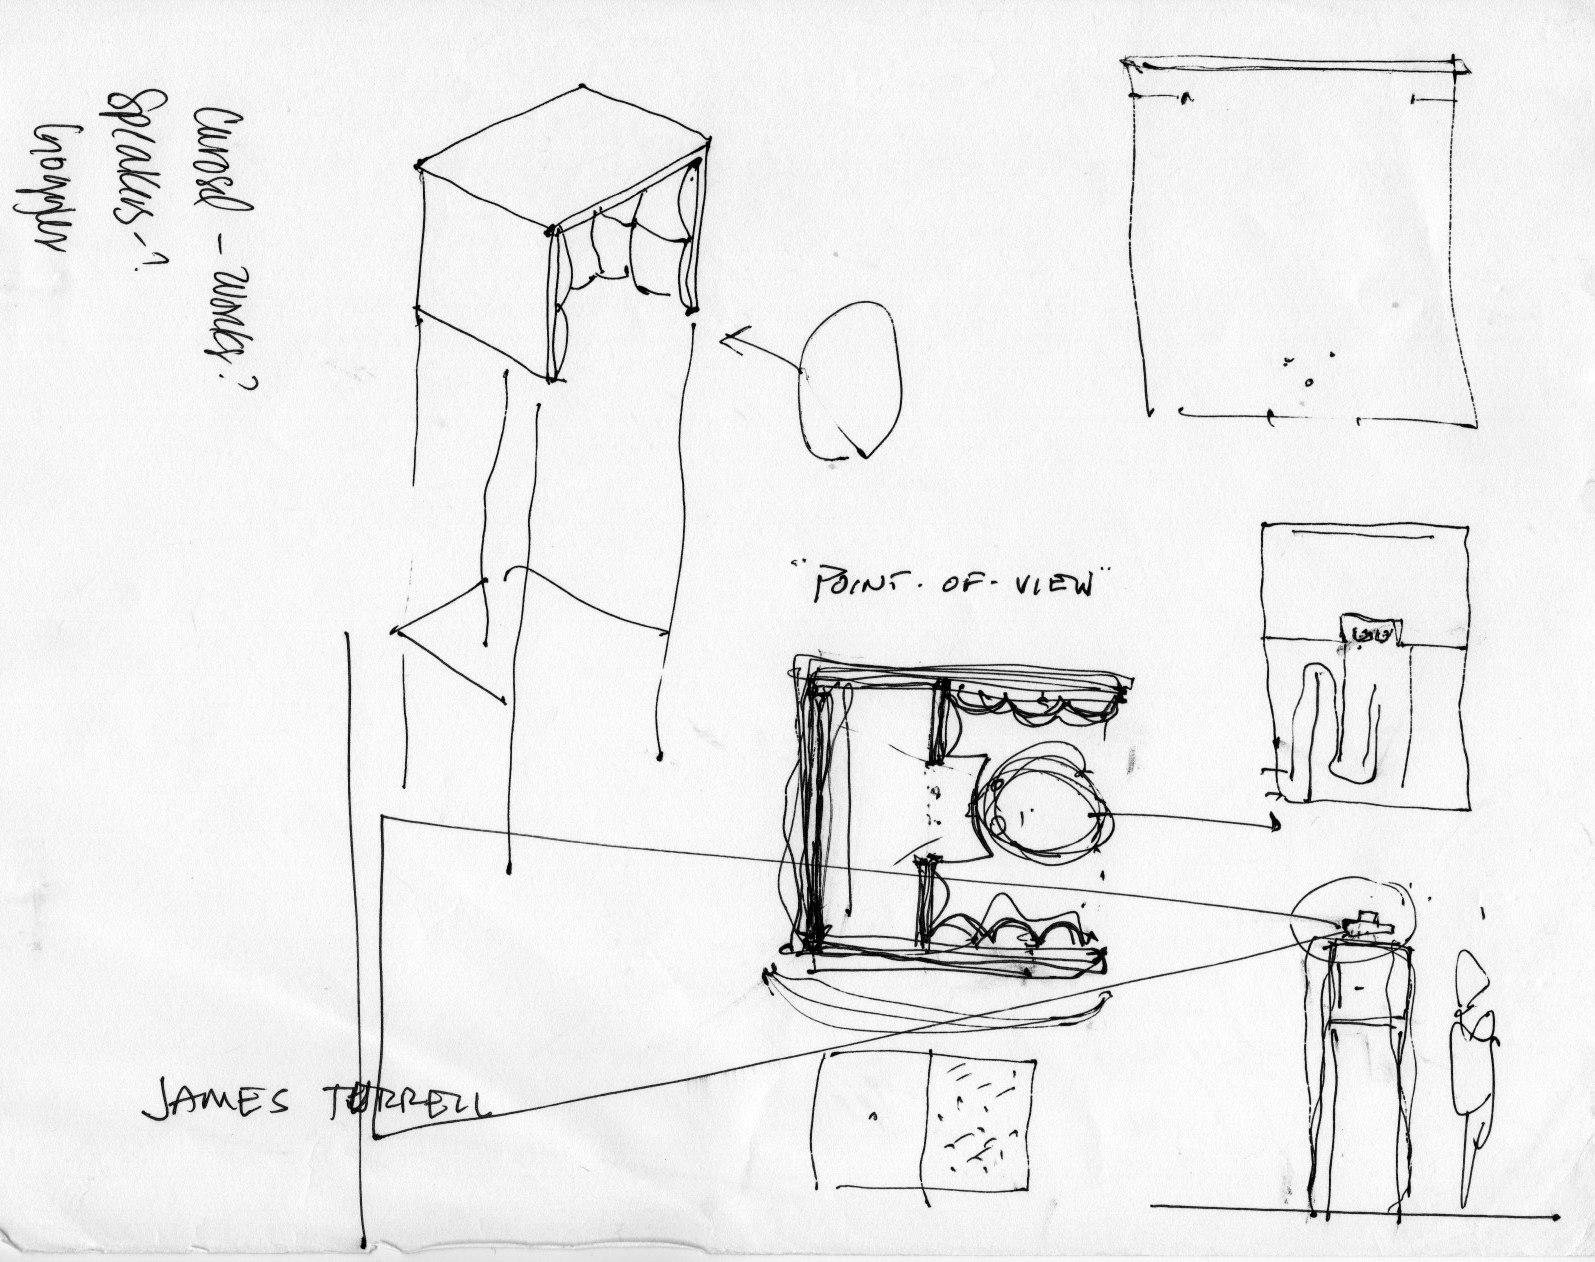 Carosel - works?
Speakers-?
"POINT-OF-VIEW"
JAMES TURRELL